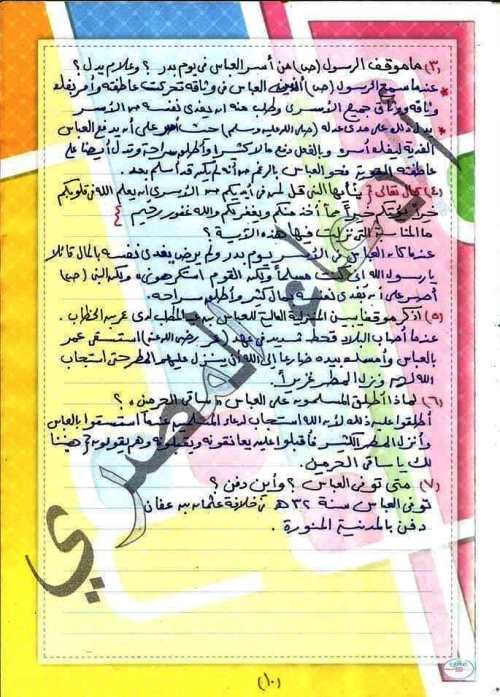 (٣) ما موقف الرسول (ص) من أسر العباس فى يوم بدر ؟ وعلام يدل ؟
* عندما سمع الرسول (ص) أنين العباس فى وثاقه تحركت عاطفته وأمر بفك
وثاقه ووثاق جميع الأسرى وطلب منه أنه يفدى نفسه من الأسر
* يدل ذلك على مدى عدله (صلى الله عليه وسلم) حيث أصر على أنه يدفع العباس
الفدية ليفك أسره وبالفعل دفع مالا كثيرا وأطلق سراحه وتدل أيضا على
عاطفته القوية نحو العباس بالرغم من أنه لم يكن قد أسلم بعد.
(٤) قال تعالى { يأيها النبى قل لمن فى أيديكم من الأسرى إن يعلم الله فى قلوبكم
خيرا يؤتكم خيرا مما أخذ منكم ويغفر لكم والله غفور رحيم }
ما المناسبة التى نزلت فيها هذه الآية ؟
عندما كان العباس فى الأسر يوم بدر ولم يرض بفدى نفسه بالمال قائلا
يا رسول الله إنى كنت مسلما ولكن القوم استكرهونى، ولكن النبى (ص)
أصر على أنه يفدى نفسه بمال كثير وأطلق سراحه.
(٥) اذكر موقفا يبين المنزلة العالية للعباس بن عبد المطلب لدى عمر بن الخطاب.
عندما أصاب البلاد قحط شديد فى عهد (عمر رضى الله عنه) استسقى عمر
بالعباس وأمسك بيده ضارعا إلى الله أن ينزل عليهم المطر حتى استجاب
الله لهم ونزل المطر غزيرا.
(٦) لماذا أطلق المسلمون على العباس "ساقى الحرمين" ؟
أطلقوا عليه ذلك لأن الله استجاب لدعاء المسلمين عندما استسقوا بالعباس
وأنزل المطر الكثير فأقبلوا عليه يعانقونه ويقبلونه وهم يقولون { هنيئا
لك يا ساقى الحرمين.
(٧) متى توفى العباس ؟ وأين دفن ؟
توفى العباس سنة ٣٢ هـ فى خلافة عثمان بن عفان
دفن بالمدينة المنورة.
المصرى
(١٠)